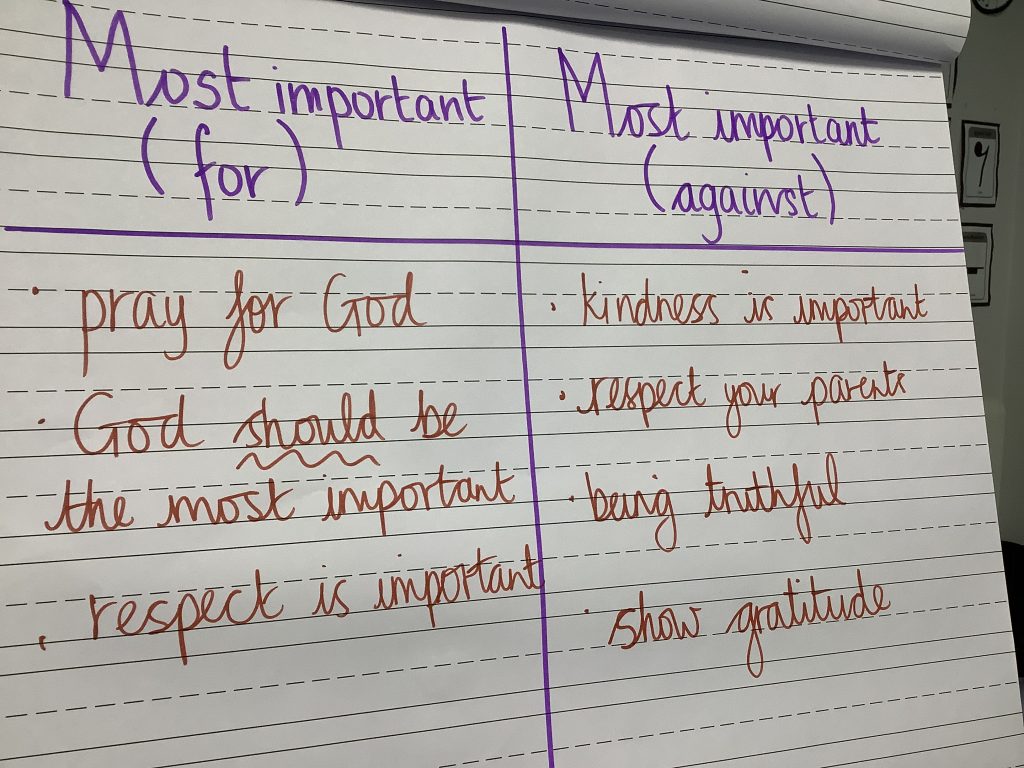 Most important
(for)
· pray for God
· God should be
the most important
· respect is important
Most important
(against)
· kindness is important
· respect your parents
· being truthful
· show gratitude
9